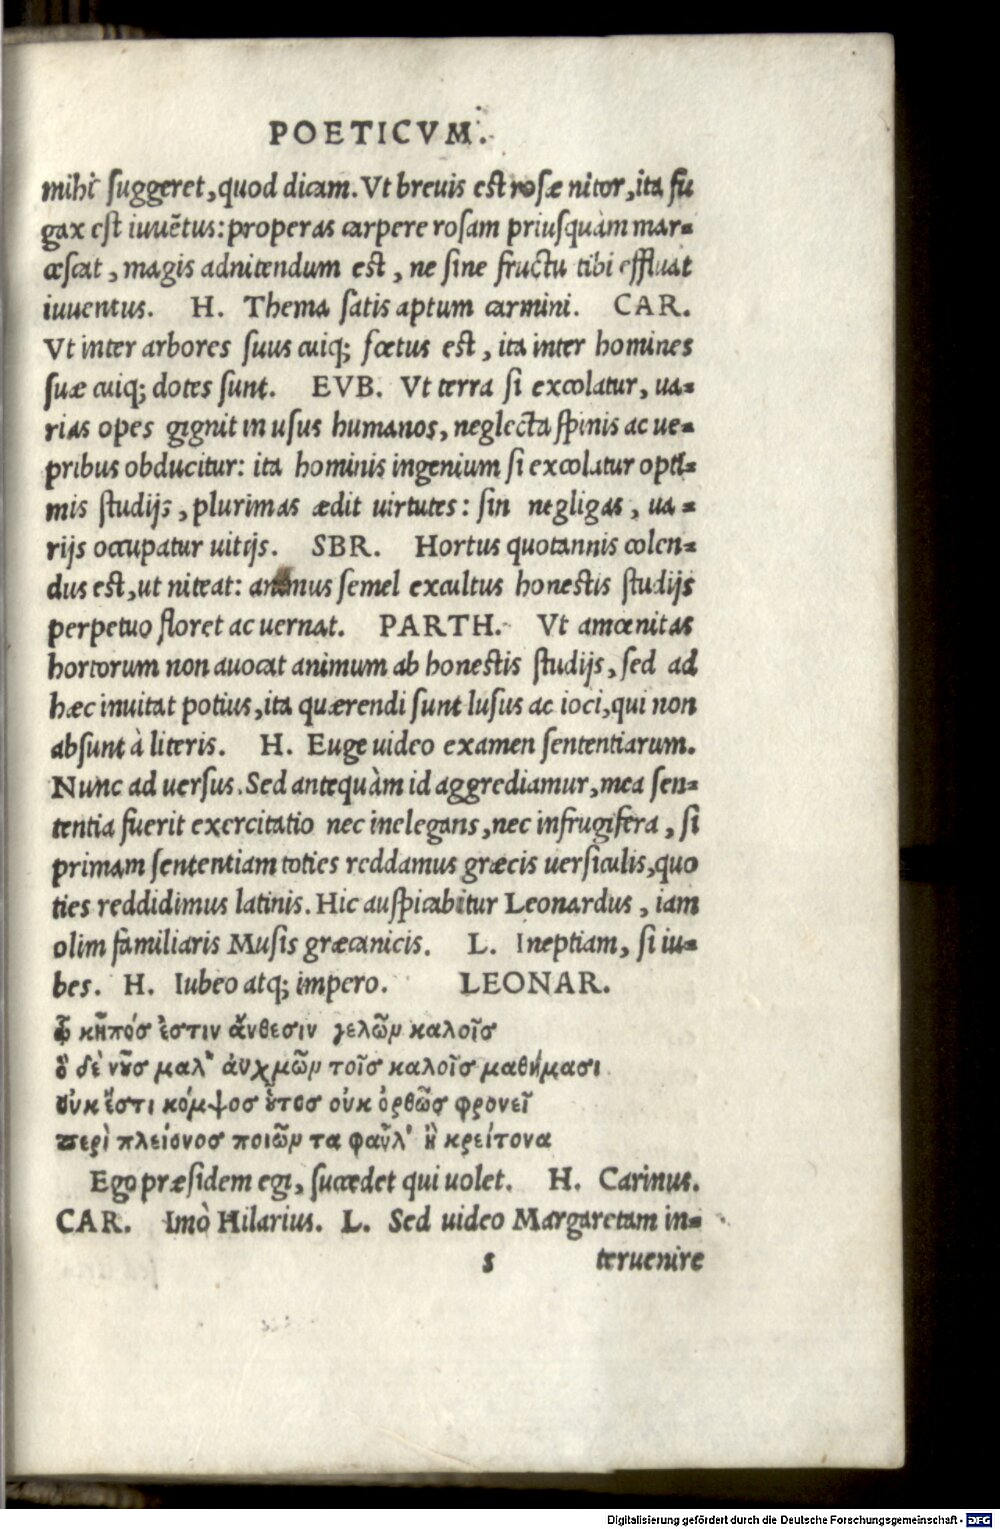 POETICVM.
mihi suggeret, quod dicam. Vt breuis est rosæ nitor, ita fu
gax est iuuẽtus: properas carpere rosam priusquàm mar-
cescat, magis adnitendum est, ne sine fructu tibi effluat
iuuentus. H. Thema satis aptum carmini. CAR.
Vt inter arbores suus cuiq; fœtus est, ita inter homines
suæ cuiq; dotes sunt. EVB. Vt terra si excolatur, ua-
rias opes gignit in usus humanos, neglecta spinis ac ue-
pribus obducitur: ita hominis ingenium si excolatur opti-
mis studijs, plurimas ædit uirtutes: sin negligas, ua-
rijs occupatur uitijs. SBR. Hortus quotannis colen-
dus est, ut niteat: animus semel excultus honestis studijs
perpetuo floret ac uernat. PARTH. Vt amœnitas
hortorum non auocat animum ab honestis studijs, sed ad
hæc inuitat potius, ita quærendi sunt lusus ac ioci, qui non
absunt à literis. H. Euge uideo examen sententiarum.
Nunc ad uersus. Sed antequàm id aggrediamur, mea sen-
tentia fuerit exercitatio nec inelegans, nec infrugifera, si
primam sententiam toties reddamus græcis uersiculis, quo
ties reddidimus latinis. Hic auspicabitur Leonardus, iam
olim familiaris Musis græcanicis. L. Ineptiam, si iu-
bes. H. Iubeo atq; impero. LEONAR.
ᾧ κῆπός ἐστιν ἄνθεσιν γελῶν καλοῖς
ὁ δὲ νοῦς μαλ' ἀυχμῶν τοῖς καλοῖς μαθήμασι
ὀυκ ἔστι κόμψος οὗτος οὐκ ὀρθῶς φρονεῖ
περὶ πλείονος ποιῶν τα φαῦλ' ἢ κρείτονα
Ego præsidem egi, succedet qui uolet. H. Carinus.
CAR. Imò Hilarius. L. Sed uideo Margaretam in-
s teruenire
Digitalisierung gefördert durch die Deutsche Forschungsgemeinschaft - DFG